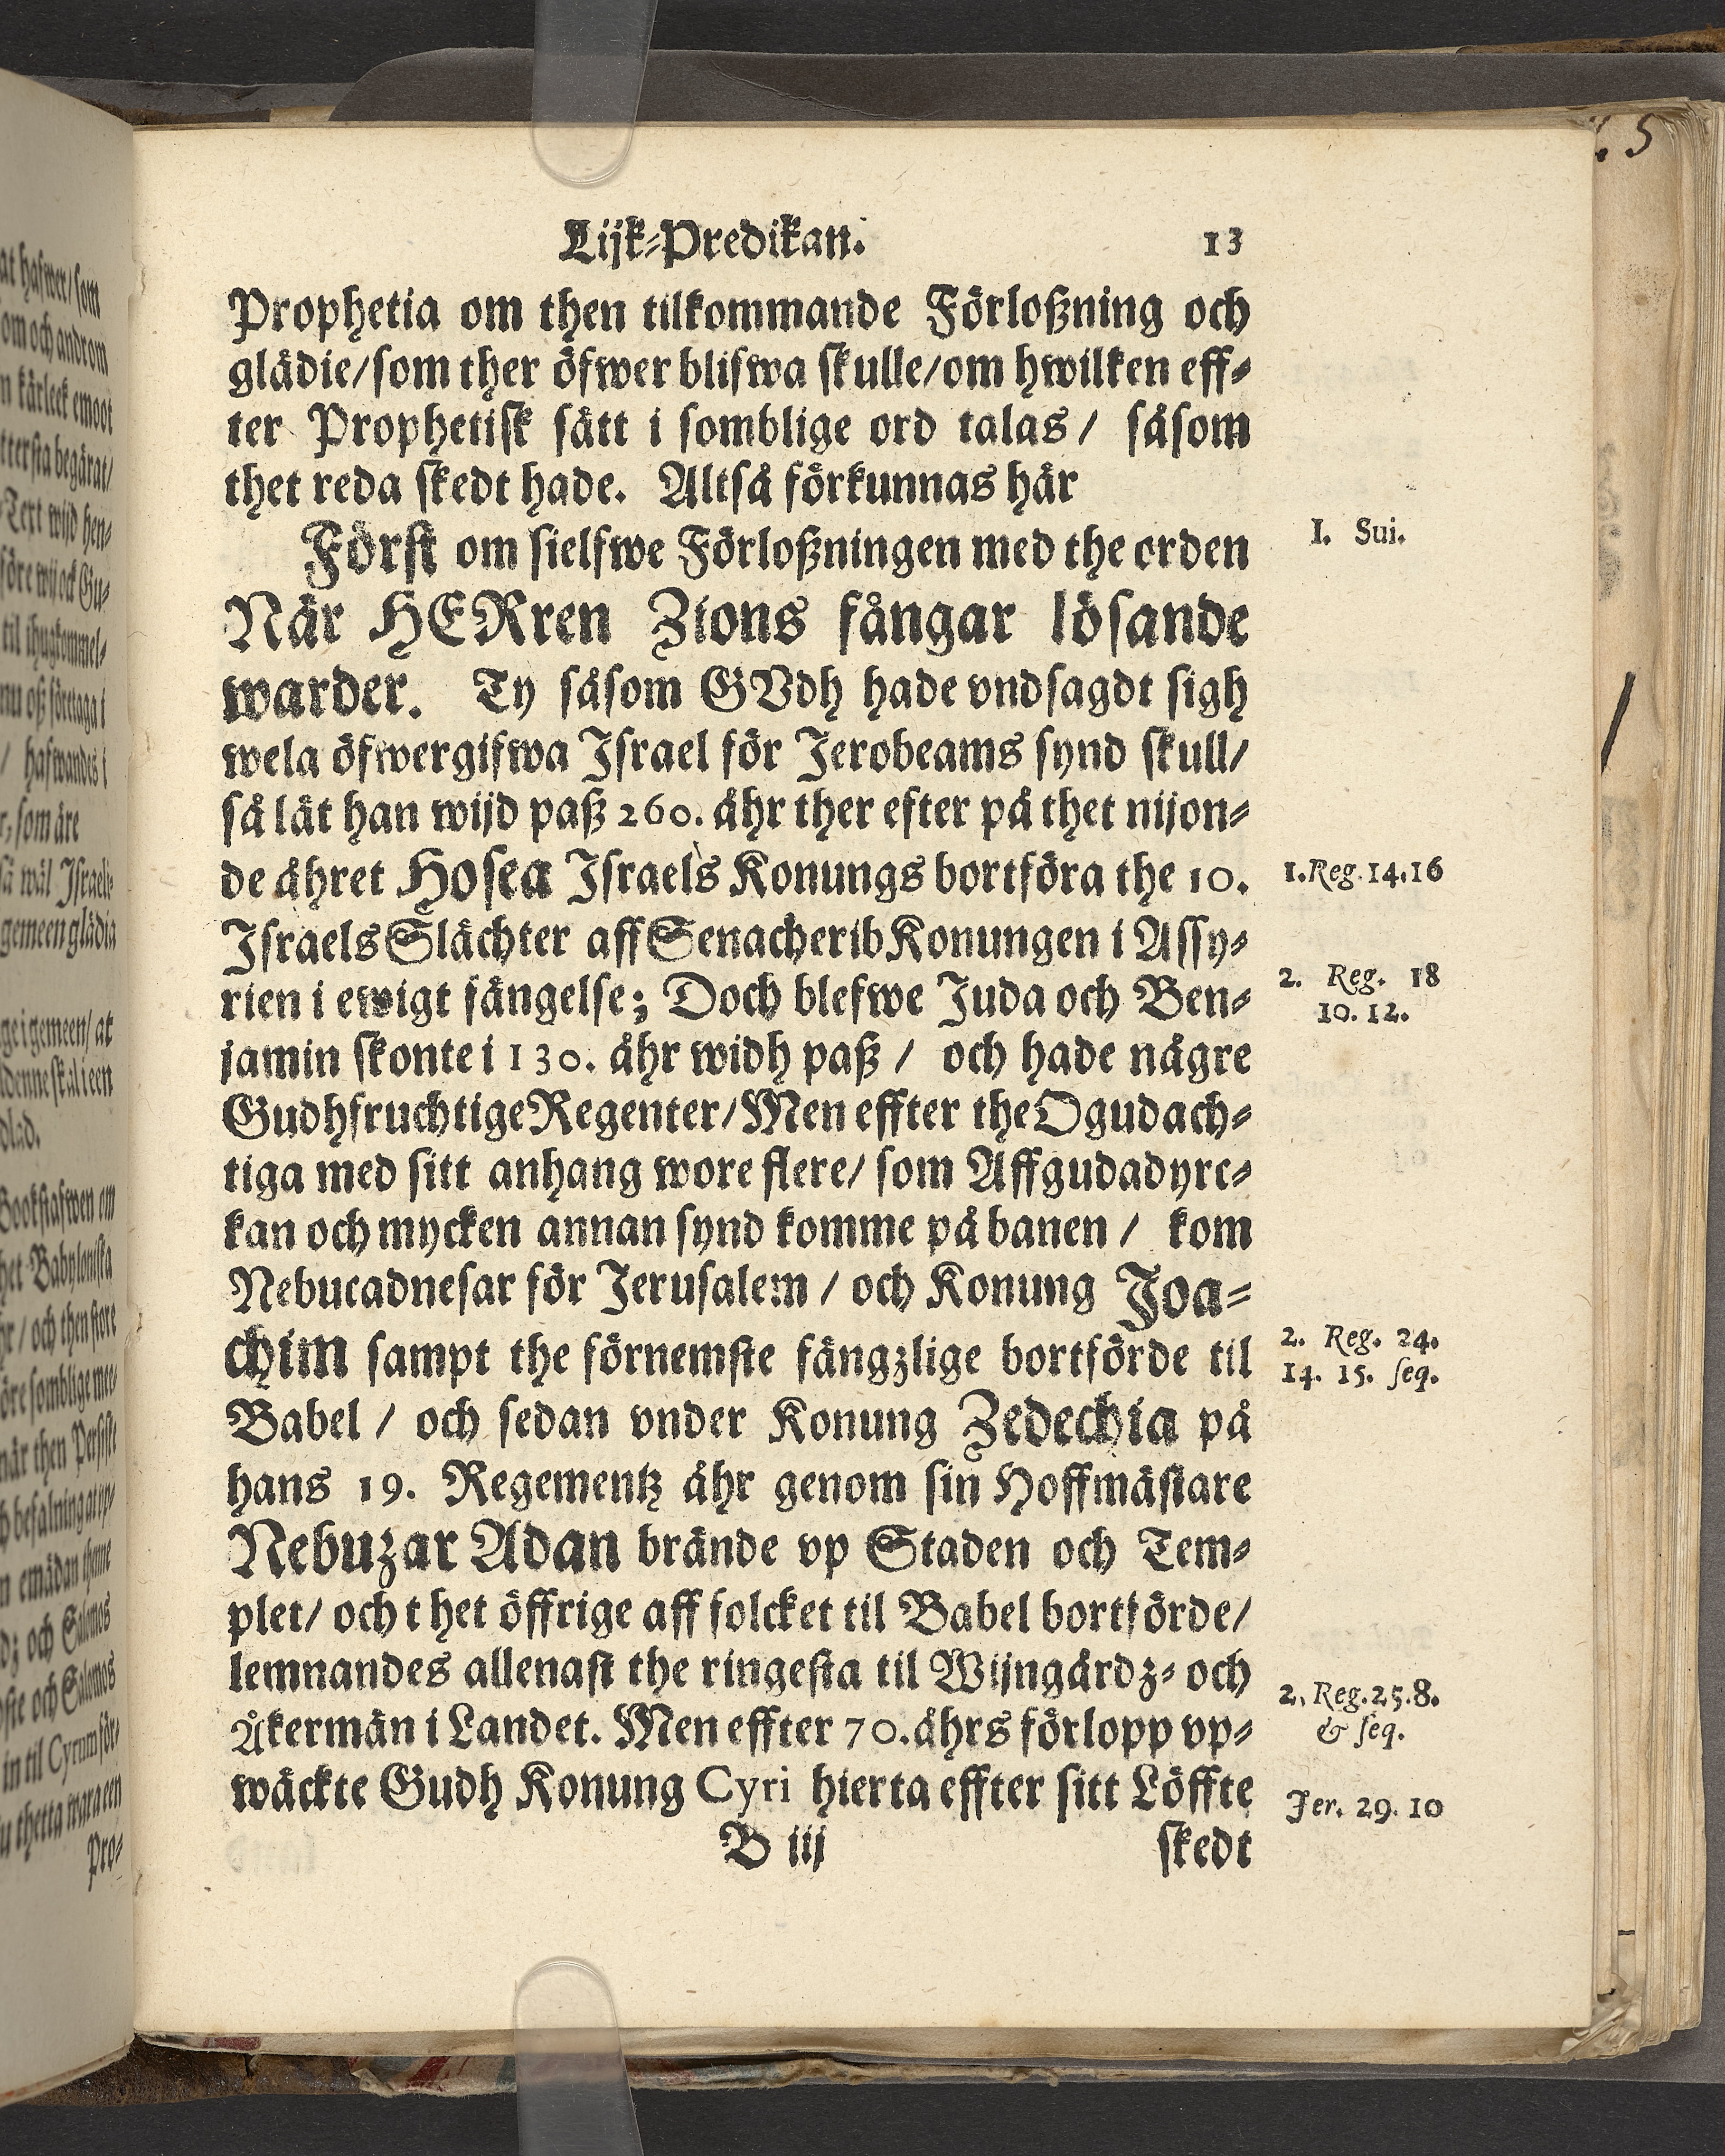 Lijk-Predikan. 13
Prophetia om then tilkommande Förloßning och
glädie/som ther öfwer blifwa skulle/om hwilken eff-
ter Prophetisk sätt i somblige ord talas/ såsom
thet reda skedt hade. Altså förkunnas här
Först om sielfwe Förloßningen med the orden
I. Sui.
När HERren Zions fångar lösande
warder. Ty såsom GVdh hade vndsagdt sigh
wela öfwergifwa Israel för Jerobeams synd skull/
så lät han wijd paß 260. åhr ther efter på thet nijon-
de åhret Hosea Israels Konungs bortföra the 10.
1.Reg.14.16
Israels Slächter aff Senacherib Konungen i Assy-
2. Reg. 18
rien i ewigt fängelse; Doch blefwe Juda och Ben-
10. 12.
jamin skonte i 130. åhr widh paß / och hade någre
Gudhfruchtige Regenter/Men effter the Ogudach-
tiga med sitt anhang wore flere/ som Affgudadyre-
kan och mycken annan synd komme på banen / kom
Nebucadnesar för Jerusalem / och Konung Joa-
chim sampt the förnemste fängzlige bortförde til
2. Reg. 24.
14. 15. seq.
Babel / och sedan vnder Konung Zedechia på
hans 19. Regementz åhr genom sin Hoffmästare
Nebuzar Adan brände vp Staden och Tem-
plet/ och t het öffrige aff folcket til Babel bortförde/
lemnandes allenast the ringesta til Wijngårdz- och
2. Reg.25.8.
Åkermän i Landet. Men effter 70.åhrs förlopp vp-
& seq.
wäckte Gudh Konung Cyri hierta effter sitt Löffte
Jer. 29. 10
B iij skedt